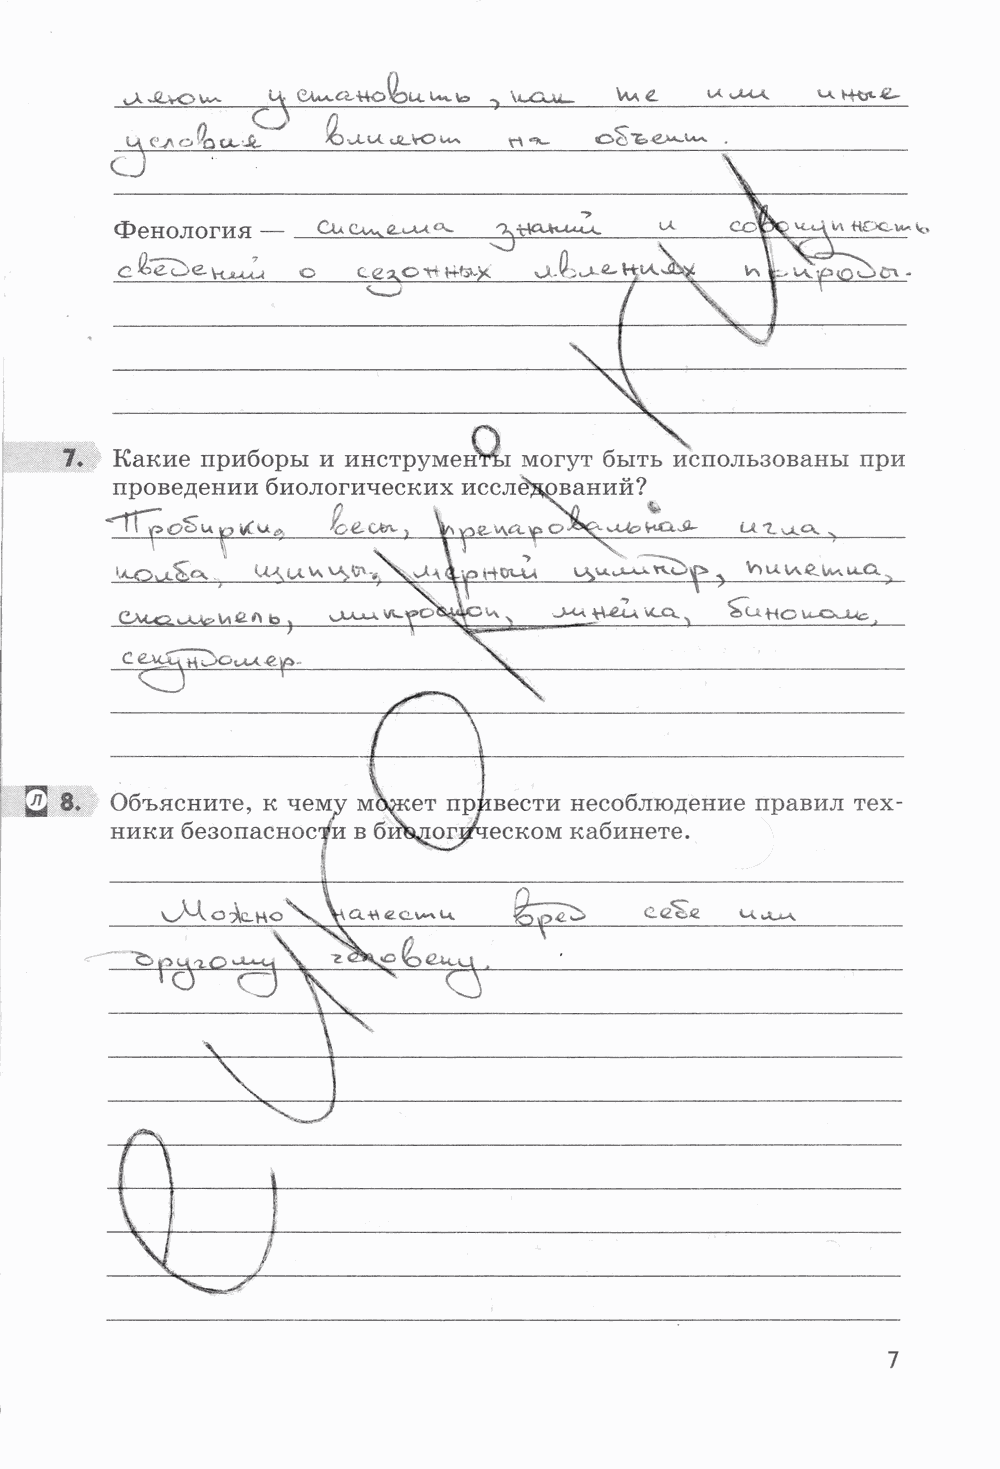 ляют установить, как те или иные
условия влияют на объект.
Фенология — система знаний и совокупность
сведений о сезонных явлениях природы.
7. Какие приборы и инструменты могут быть использованы при
проведении биологических исследований?
Пробирки, весы, препаровальная игла,
колба, щипцы, мерный цилиндр, пипетка,
скальпель, микроскоп, линейка, бинокль,
секундомер.
Л 8. Объясните, к чему может привести несоблюдение правил тех-
ники безопасности в биологическом кабинете.
Можно нанести вред себе или
другому человеку.
euroki.ru
7